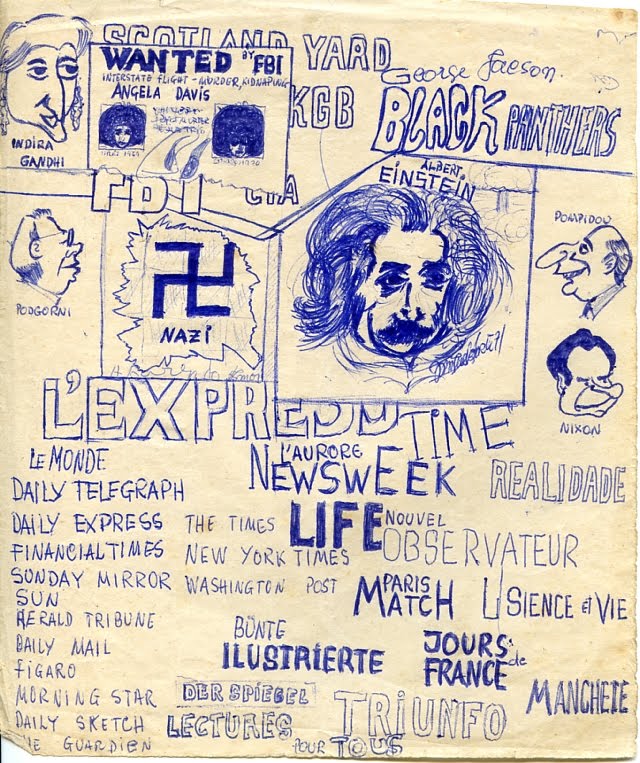 SCOTLAND YARD
WANTED BY FBI
INTERSTATE FLIGHT - MURDER, KIDNAPING
ANGELA DAVIS
KGB
George Jaeson.
BLACK PANTHERS
INDIRA GANDHI
FBI
CIA
ALBERT EINSTEIN
PODGORNI
NAZI
POMPIDOU
NIXON
L'EXPRESS
TIME
LE MONDE
L'AURORE
NEWSWEEK
REALIDADE
DAILY TELEGRAPH
DAILY EXPRESS
THE TIMES
LIFE
NOUVEL
OBSERVATEUR
FINANCIAL TIMES
NEW YORK TIMES
SUNDAY MIRROR
WASHINGTON POST
PARIS
MATCH
SIENCE et VIE
SUN
HERALD TRIBUNE
BUNTE
ILUSTRIERTE
JOURS de
FRANCE
DAILY MAIL
FIGARO
MORNING STAR
DER SPIEGEL
TRIUNFO
MANCHEIE
DAILY SKETCH
LECTURES
POUR TOUS
THE GUARDIEN